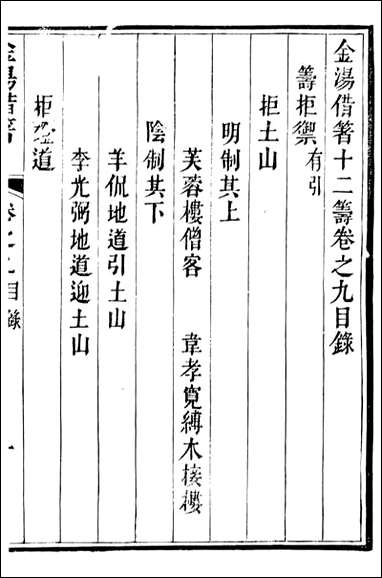 金湯借箸十二籌卷之九目錄
籌拒禦有引
拒土山
明制其上
芙蓉樓僧客 韋孝寬縛木接樓
陰制其下
羊侃地道引土山
李光弼地道迎土山
拒 道
金湯借箸 卷之九目錄 一